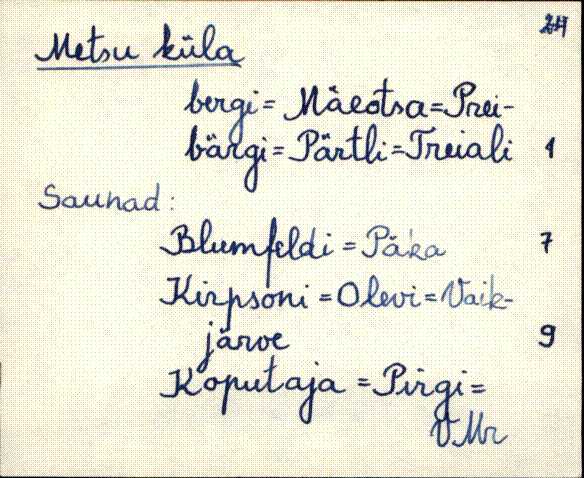 Metsu küla
bergi = Mäeotsa = Prei-
bärgi = Pärtli = Treiali 1
Saunad:
Blumfeldi = Päka 7
Kirpsoni = Olevi = Vaik-
järve 9
Koputaja = Pirgi =
VMr